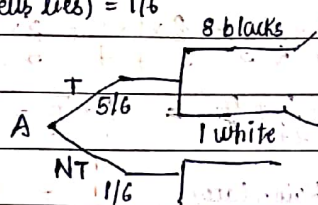 lies) = 1/6
8 blacks
T
5/6
A
1 white
NT
1/6